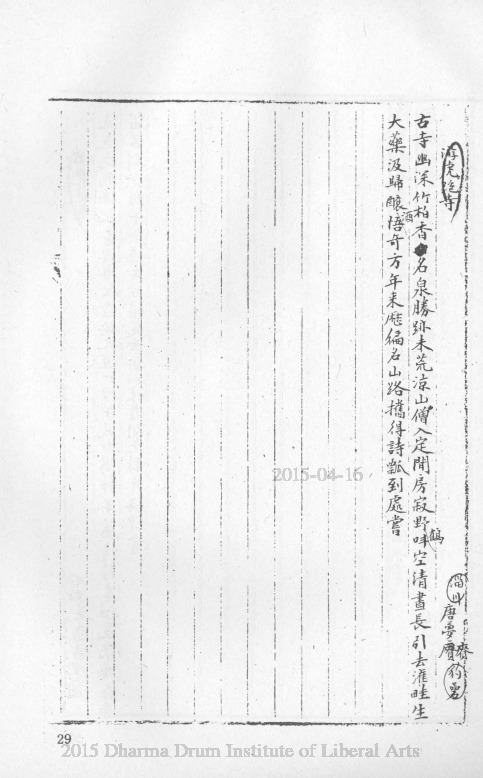 游虎跑寺
淄川唐夢賚豹嵒
齋
古寺幽深竹柏香名泉勝跡未荒涼山僧入定閒房寂野呼空清晝長引去滙畦生
鶴
大藥汲歸釀悟奇方年来歷徧名山路攜得詩瓢到處嘗
酒
2015-04-16
29
2015 Dharma Drum Institute of Liberal Arts